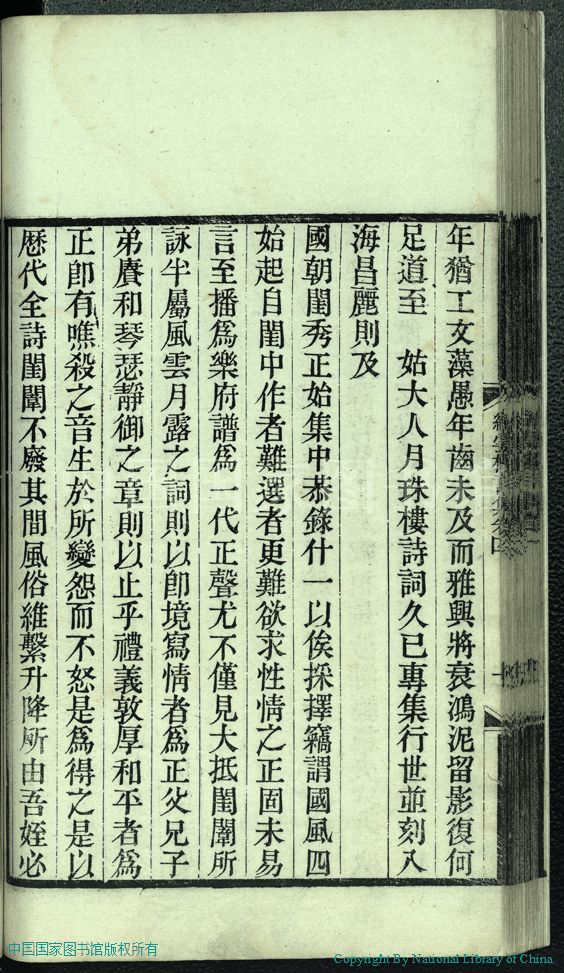 年猶工文藻愚年齒未及而雅興將衰鴻泥留影復何
足道至　姑大人月珠樓詩詞久已專集行世並刻入
海昌麗則及
國朝閨秀正始集中恭錄什一以俟採擇竊謂國風四
始起自閨中作者難選者更難欲求性情之正固未易
言至播爲樂府譜爲一代正聲尤不僅見大抵閨閫所
詠半屬風雲月露之詞則以卽境寫情者爲正父兄子
弟賡和琴瑟靜御之章則以止乎禮義敦厚和平者爲
正卽有噍殺之音生於所變怨而不怒是爲得之是以
歷代全詩閨閫不廢其間風俗維繫升降所由吾姪必
中国国家图书馆版权所有
Copyright By National Library of China